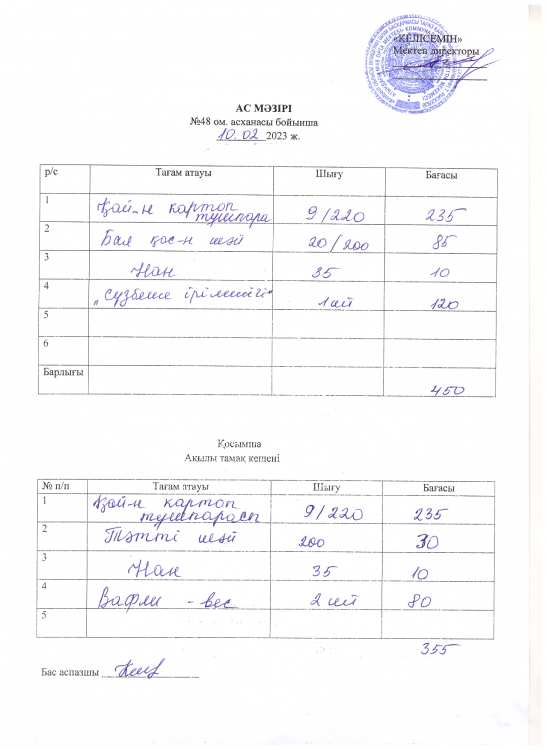 «КЕЛІСЕМІН»
Мектеп директоры
АС МӘЗІРІ
№48 ом. асханасы бойынша
10.02 2023 ж.
р/с Тағам атауы Шығу Бағасы
1 Қай-н картоп тұшпара 9/220 235
2 Бал қос-н шәй 20/200 85
3 Нан 35 10
4 „Сүзбеше ірімшігі" 1 шт 120
5
6
Барлығы 450
Қосымша
Ақылы тамақ кешені
№ п/п Тағам атауы Шығу Бағасы
1 Қай-н картоп тұшпарасы 9/220 235
2 Тәтті шәй 200 30
3 Нан 35 10
4 Вафли - вес 2 шт 80
5
355
Бас аспазшы